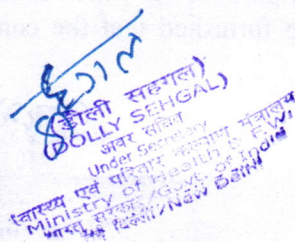 furnished
the com
(डौली सहगल)
(DOLLY SEHGAL)
अवर सचिव
Under Secretary
स्वास्थ्य एवं परिवार कल्याण मंत्रालय
Ministry of Health & F.W.
भारत सरकार/Govt. of India
नई दिल्ली/New Delhi